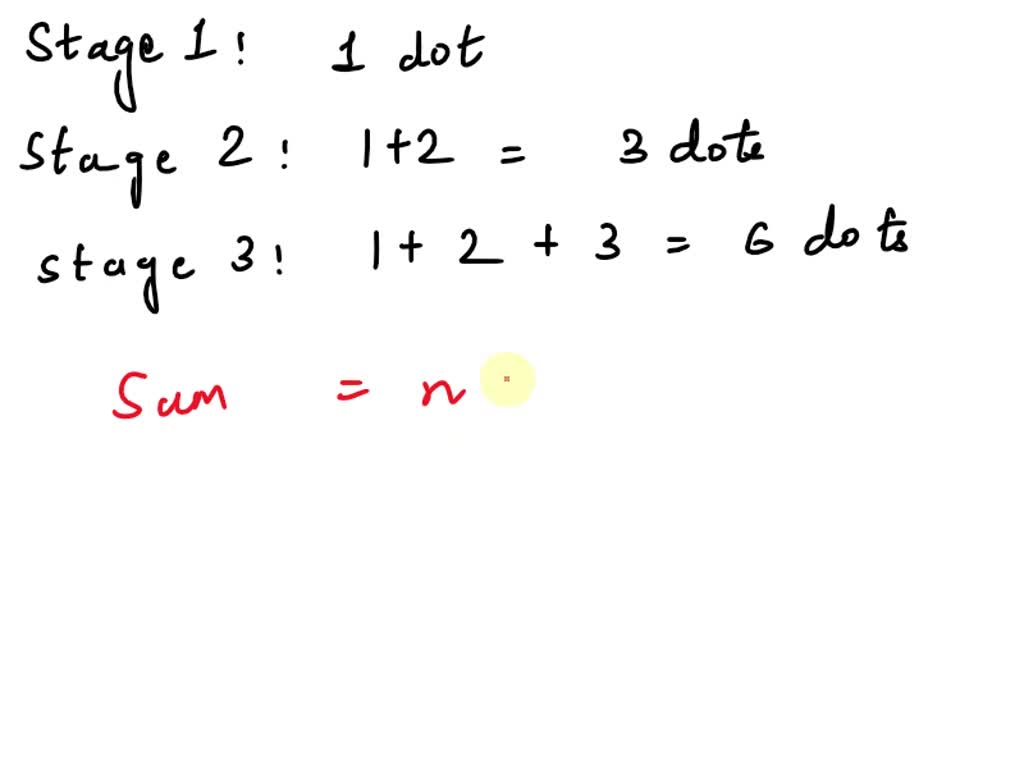 Stage 1: 1 dot
Stage 2: 1+2 = 3 dots
stage 3: 1 + 2 + 3 = 6 dots
Sum = n